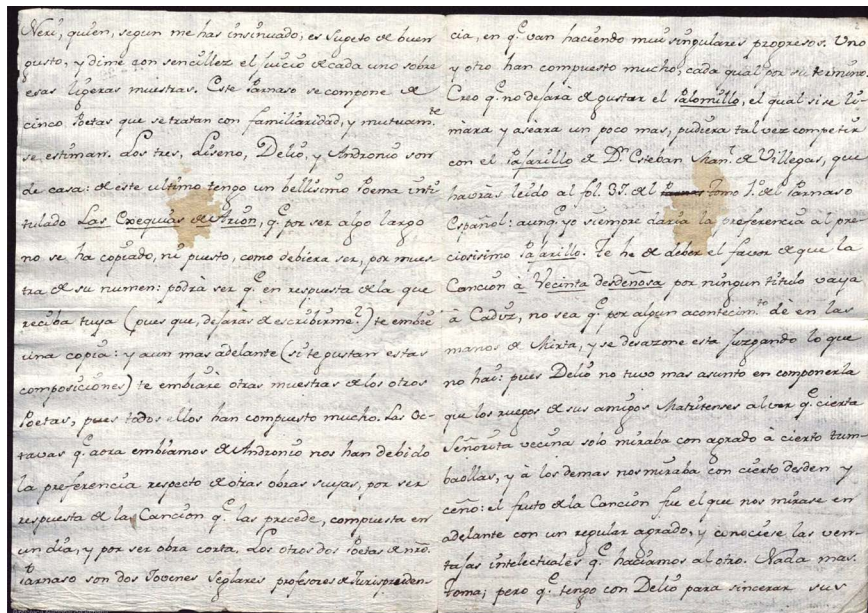 Neri, quien, segun me has insinuado, es sugeto de buen
gusto, y dime con sencillez el juicio de cada uno sobre
esas ligeras muestras. Este Parnaso se compone de
cinco Poetas que se tratan con familiaridad, y mutuam.te
se estiman. Los tres, Liseno, Delio, y Andronio son
de casa: de este ultimo tengo un bellisimo Poema inti
tulado Las Exequias de Arion, q.e por ser algo largo
no se ha copiado, ni puesto, como debiera ser, por mues
tra de su numen: podrà ser q.e en respuesta de la que
reciba tuya (pues que, dejaràs de escribirme?) te embie
una copia: y aun mas adelante (si te gustan estas
composiciones) te embiarè otras muestras de los otros
Poetas, pues todos ellos han compuesto mucho. Las Oc-
tavas q.e aora embiamos de Andronio nos han debido
la preferencia respecto de otras obras suyas, por ser
respuesta de la Cancion q.e las precede, compuesta en
un dia, y por ser obra corta. Los otros dos Poetas de nrô.
Parnaso son dos Jovenes Seglares profesores de Jurispruden-
cia, en q.e van haciendo mui singulares progresos. Uno
y otro han compuesto mucho, cada qual por su termino.
Creo q.e no dejarà de gustar el Palomillo, el qual si se li
màra y aseàra un poco mas, pudiera tal vez competir
con el Pajarillo de D.n Esteban Man.l de Villegas, que
havràs leido al fol. 37. del Tomo 1.o del Parnaso
Español: aunq.e yo siempre daria la preferencia al pre-
ciosisimo Pajarillo. Te he de deber el favor de que la
Cancion à Vecinta desdeñosa por ningun titulo vaya
à Cadiz, no sea q.e por algun acontecim.to dè en las
manos de Mirta, y se desazone esta juzgando lo que
no hai: pues Delio no tuvo mas asunto en componerla
que los ruegos de sus amigos Matritenses al ver q.e cierta
Señorita vecina solo miraba con agrado à cierto trum-
baollas, y à los demas nos miraba con cierto desden y
ceño: el fruto de la Cancion fue el que nos mirase en
adelante con un regular agrado, y conociese las ven-
tajas intelectuales q.e haciamos al otro. Nada mas.
Toma; pero q.e tengo con Delio para sincerar sus